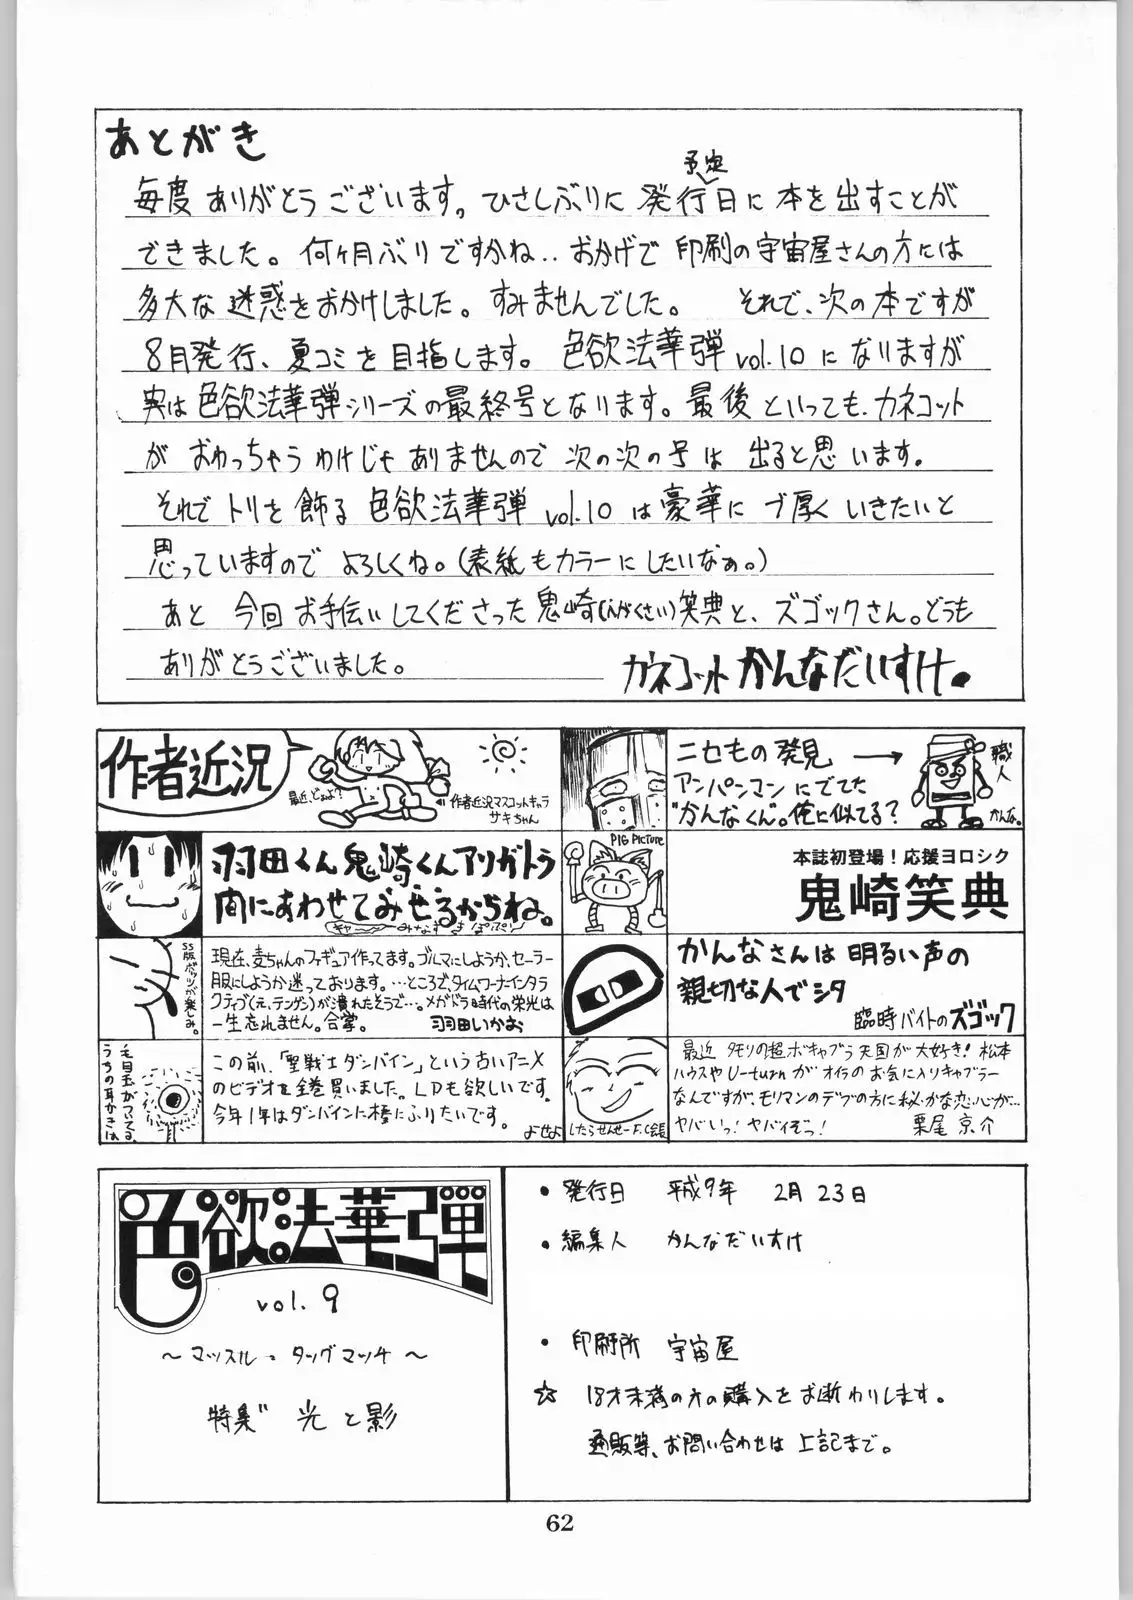 あとがき
予定
毎度ありがとうございます。ひさしぶりに発行日に本を出すことが
できました。何ヶ月ぶりですかね‥おかげで印刷の宇宙屋さんの方には
多大な迷惑をおかけしました。すみませんでした。 それで、次の本ですが
8月発行、夏コミを目指します。色欲法華弾vol.10になりますが
実は色欲法華弾シリーズの最終号となります。最後といっても、カネコット
がおわっちゃうわけじゃありませんので次の次の号は出ると思います。
それでトリを飾る色欲法華弾vol.10は豪華にブ厚くいきたいと
思っていますのでよろしくね。(表紙もカラーにしたいなぁ。)
あと今回お手伝いしてくださった鬼崎(えがくさい)笑典と、ズゴックさん。どうも
ありがとうございました。
カネコット かんなだいすけ。
作者近況
最近、どぉよ?
作者近況マスコットキャラ
サキちゃん
ニセもの発見
アンパンマンにでてた
"かんなくん"。俺に似てる?
職人
かんな。
羽田くん鬼崎くんアリガトウ
間にあわせてみせるからね。
PIG PICTURE
本誌初登場!応援ヨロシク
鬼崎笑典
SS版ポリッツが楽しみ。
現在、麦ちゃんのフィギュア作ってます。ブルマにしようか、セーラー
服にしようか迷っております。…ところで、タイムワーナーインタラ
クティブ(え、テンゲン)が潰れたそうで…。メガドラ時代の栄光は
一生忘れません。合掌。 羽田いかお
かんなさんは明るい声の
親切な人でシタ
臨時バイトのズゴック
毛目玉がついてる。
うちの耳かきは
この前、「聖戦士ダンバイン」という古いアニメ
のビデオを全巻買いました。LDも欲しいです。
今年1年はダンバインに棒にふりたいです。
よせよ
したらせんせーF.C会長
最近 タモリの超ボキャブラ天国が大好き!松本
ハウスやU-turnがオイラのお気に入りキャブラー
なんですが、モリマンのデブの方に秘かな恋心が…
ヤバいっ!ヤバイぞっ!
栗尾京介
色欲法華弾
vol.9
〜マッスル・タッグマッチ〜
特集 光と影
・発行日 平成9年 2月23日
・編集人 かんなだいすけ
・印刷所 宇宙屋
☆ 18才未満の方の購入をお断わりします。
通販等、お問い合わせは上記まで。
62